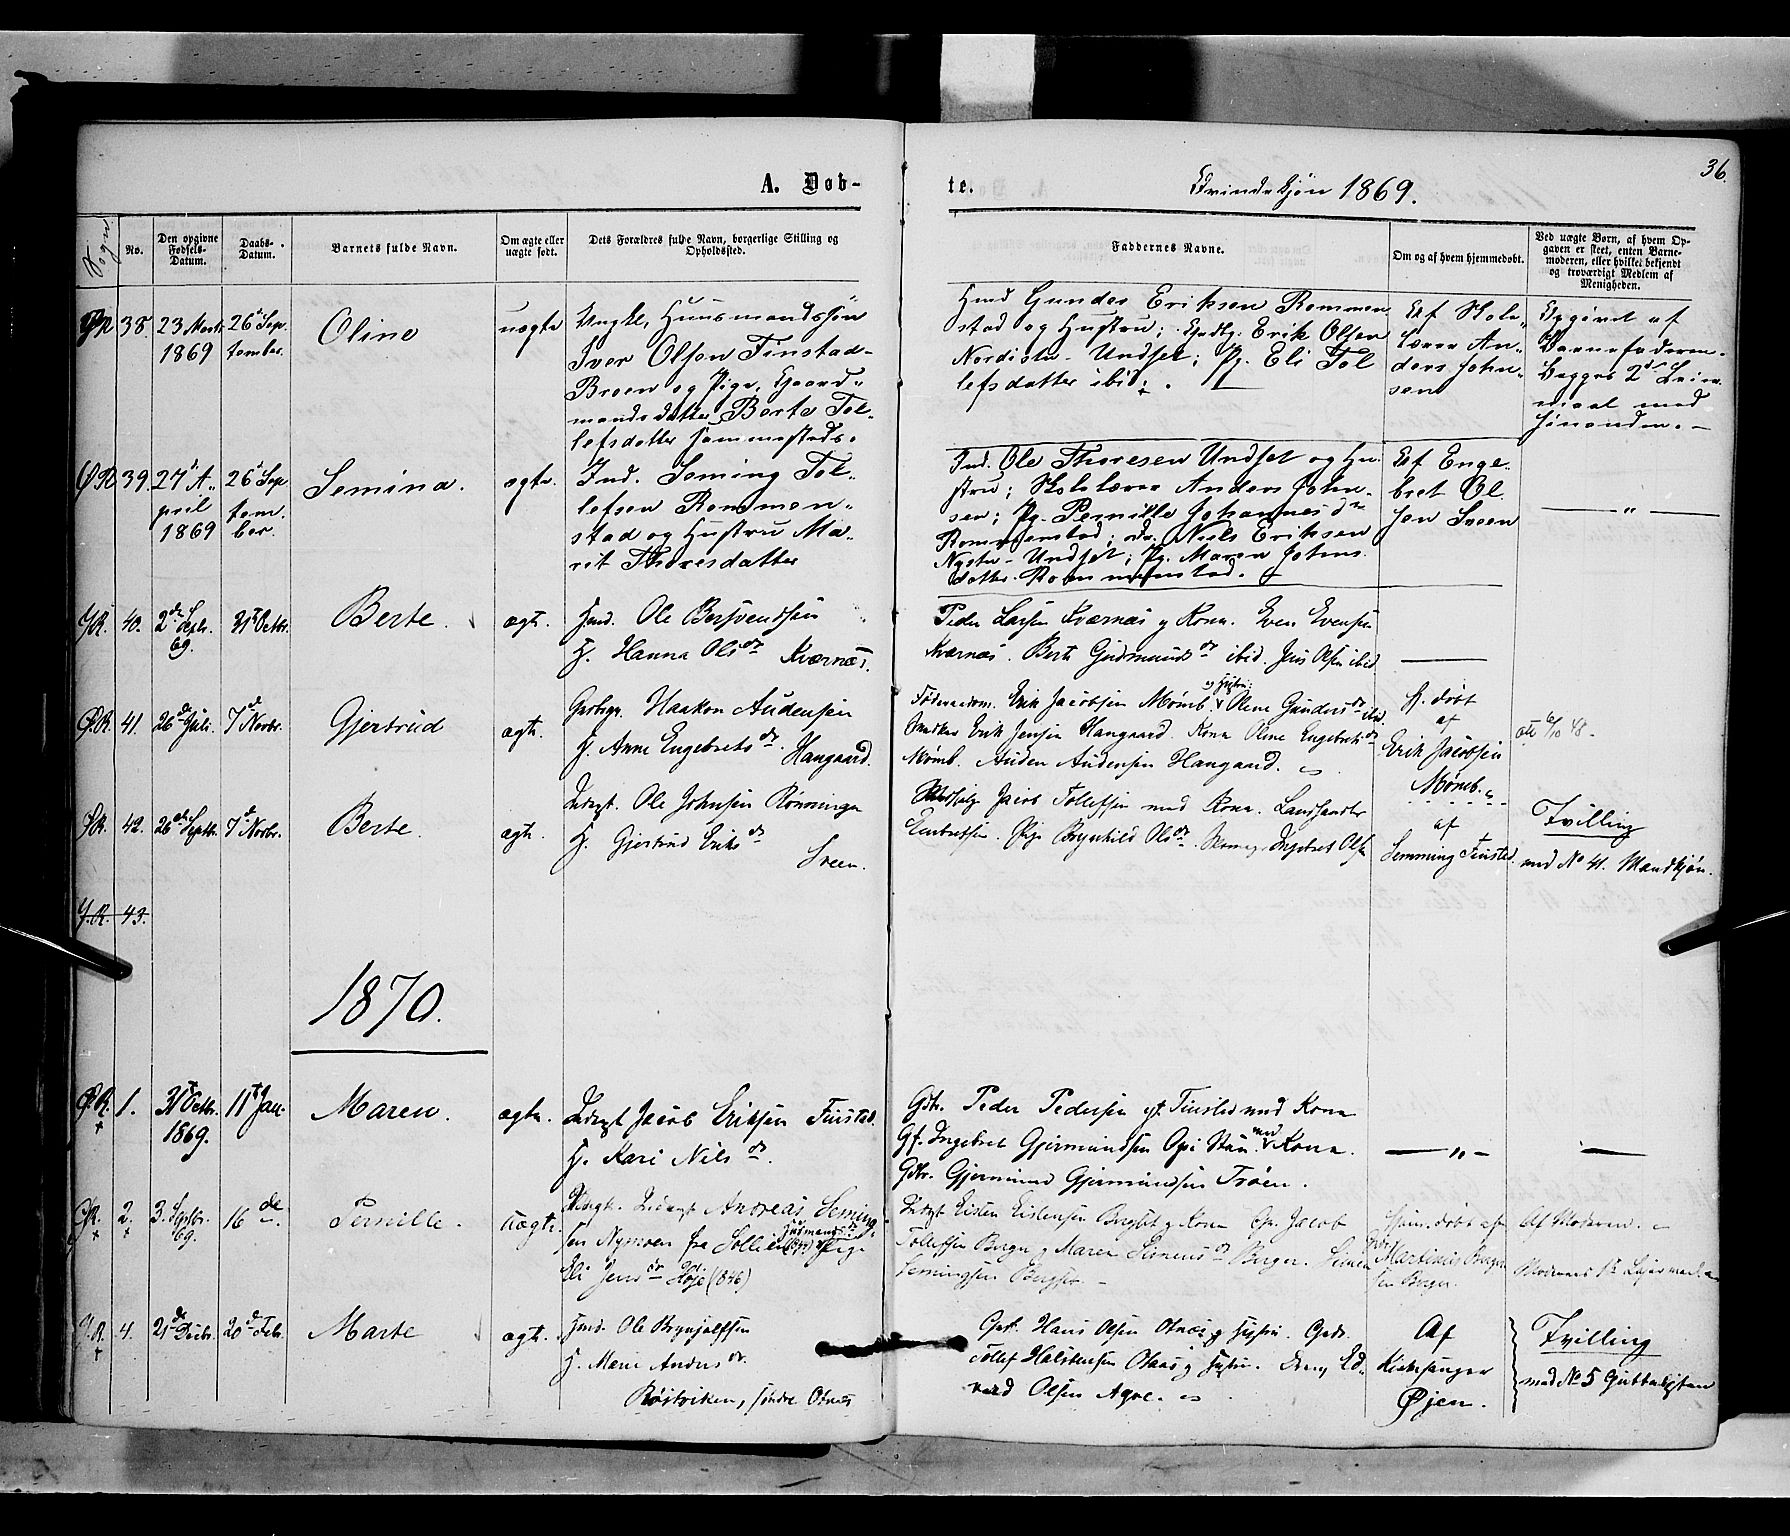 36.
A. Døb-
te.
Qvindekjøn 1869.
Sogn.
No.
Den opgivne Fødsels-Datum.
Daabs-Datum.
Barnets fulde Navn.
Om ægte eller uægte født.
Dets Forældres fulde Navn, borgerlige Stilling og Opholdssted.
Faddernes Navne.
Om og af hvem hjemmedøbt.
Ved uægte Børn, af hvem Opgaven er skeet, enten Barnemoderen, eller hvilket bekjendt og troværdigt Medlem af Menigheden.
ØR 38. 23 Marts 1869
26de September.
Oline
uægte
Ungk. Huusmandssøn
Iver Olsen Finstad-
Broen og Pige, Gaard-
mandsdatter Berte Tol-
lefsdatter sammesteds.
Gmd Gunder Eriksen Rommen
stad og Hustru; Erik Olsen
Nordistu-Undset; Pg. Eli Tol
lefsdatter ibid.
Af Skole-
lærer An-
ders John-
sen
Opgivet af
Barnefaderen.
Begges 2det Leier-
maal med
hinanden. -
ØR 39. 27de April 1869
26de September.
Semina.
ægte
Ind. Seming Tol-
lefsen Rommen-
stad og Hustru Ma-
rit Thoresdatter
Ind. Ole Thoresen Undset og Hu-
stru; Skolelærer Anders John-
sen; Pg. Pernille Johannesdr
Rommenstad; Niels Eriksen
Nystu-Undset; Pg. Maren Johns
datter Rommenstad.
Af Enge-
bret Ol-
sen Sveen
— " —
Y.R. 40. 2den Septr. 69.
31te Octbr.
Berte.
ægt.
Gmd. Ole Bersvendsen
H. Hanna Olsdr Kværnæs.
Peder Larsen Kværnæs og Kone. Even Evensen
Kværnæs. Berte Gudmundsdr ibid. Jens Olsen ibid
Ø.R. 41. 26de Juli.
7de Novbr.
Gjertrud
ægt.
Haakon Audensen
H. Anne Engebretsdr. Haugaard.
Erik Jacobsen Mømb. og Hustru: Olene Gundersdr ibid.
Erik Jensen Haugaard. Kone Olene Engebretsdr
Mømb. Auden Audensen Haugaard.
Hj. døbt
af
Erik Jacobsen
Mømb.
att 6/10 48.
Ø.R. 42. 26de Septbr.
7de Novbr.
Berte.
ægt.
Ole Johnsen Rønningen
H. Gjertrud Eriksdr
Sveen.
Jacob Tollefsen med Kone. Landhandler
Embretsen. Pige Brynhild Olsdr. Ingebret Olsen
af
Semming Finstad.
Tvilling
med No 41. Mandkjøn.
Y.R. 43.
1870.
Ø.R. 1. 31te Octbr. 1869.
11te Jan.
Maren.
ægte.
Jacob Eriksen Finstad.
H. Kari Nilsdr.
Gbr. Peder Pedersen Finstad med Kone
Gf. Ingebret Gjermundsen Opistuen med Kone.
Gbr. Gjermund Gjermundsen Trøen.
— " —
—
Ø.R. 2. 3. Septbr. 69.
16de "
Pernille.
uægte.
Ungk. Andreas Seming-
sen Nymoen fra Sollien og Pige
Eli Jensdr Høye (1846)
Eisten Eistensen Bergset og Kone Jacob
Tollefsen Berger og Maren Simensdr Berger. Simen
Semingsen Bergset -
Hjemmedøbt af
Martinus Berger
sen Berger.
Af Moderen. -
Moderens 1ste Leiermaal.
Y.R. 4. 21de Decbr.
20de Febr.
Marte
ægt.
Gmd. Ole Brynjulfsen
H. Marie Andersdr.
Røstviken, søndre Otnes
Hans Olsen Otnæs og Hustru. Gmd.
Tollef Halstensen Otnæs og Hustru. Ed-
vard Olsen Agre.
Af
Kirkesanger
Øjen.
Tvilling
med No 5 Guttelisten